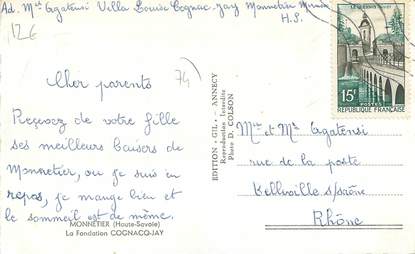 Ad. Melle Agatensi Villa Louise Cognac-Jay Monnetier Mornex
H.S.
12€
74
Cher parents
Recevez de votre fille
ses meilleurs baisers de
Monnetier, ou je suis en
repos, je mange bien et
le sommeil est de même.
MONNETIER (Haute-Savoie)
La Fondation COGNACQ-JAY
EDITION - GIL - ANNECY
Reproduction Interdite
Photo D. COLSON
LE QUESNOY
15F
POSTES
RÉPUBLIQUE FRANÇAISE
Mr et Me Agatensi
rue de la poste
Belleville s/saône
Rhône